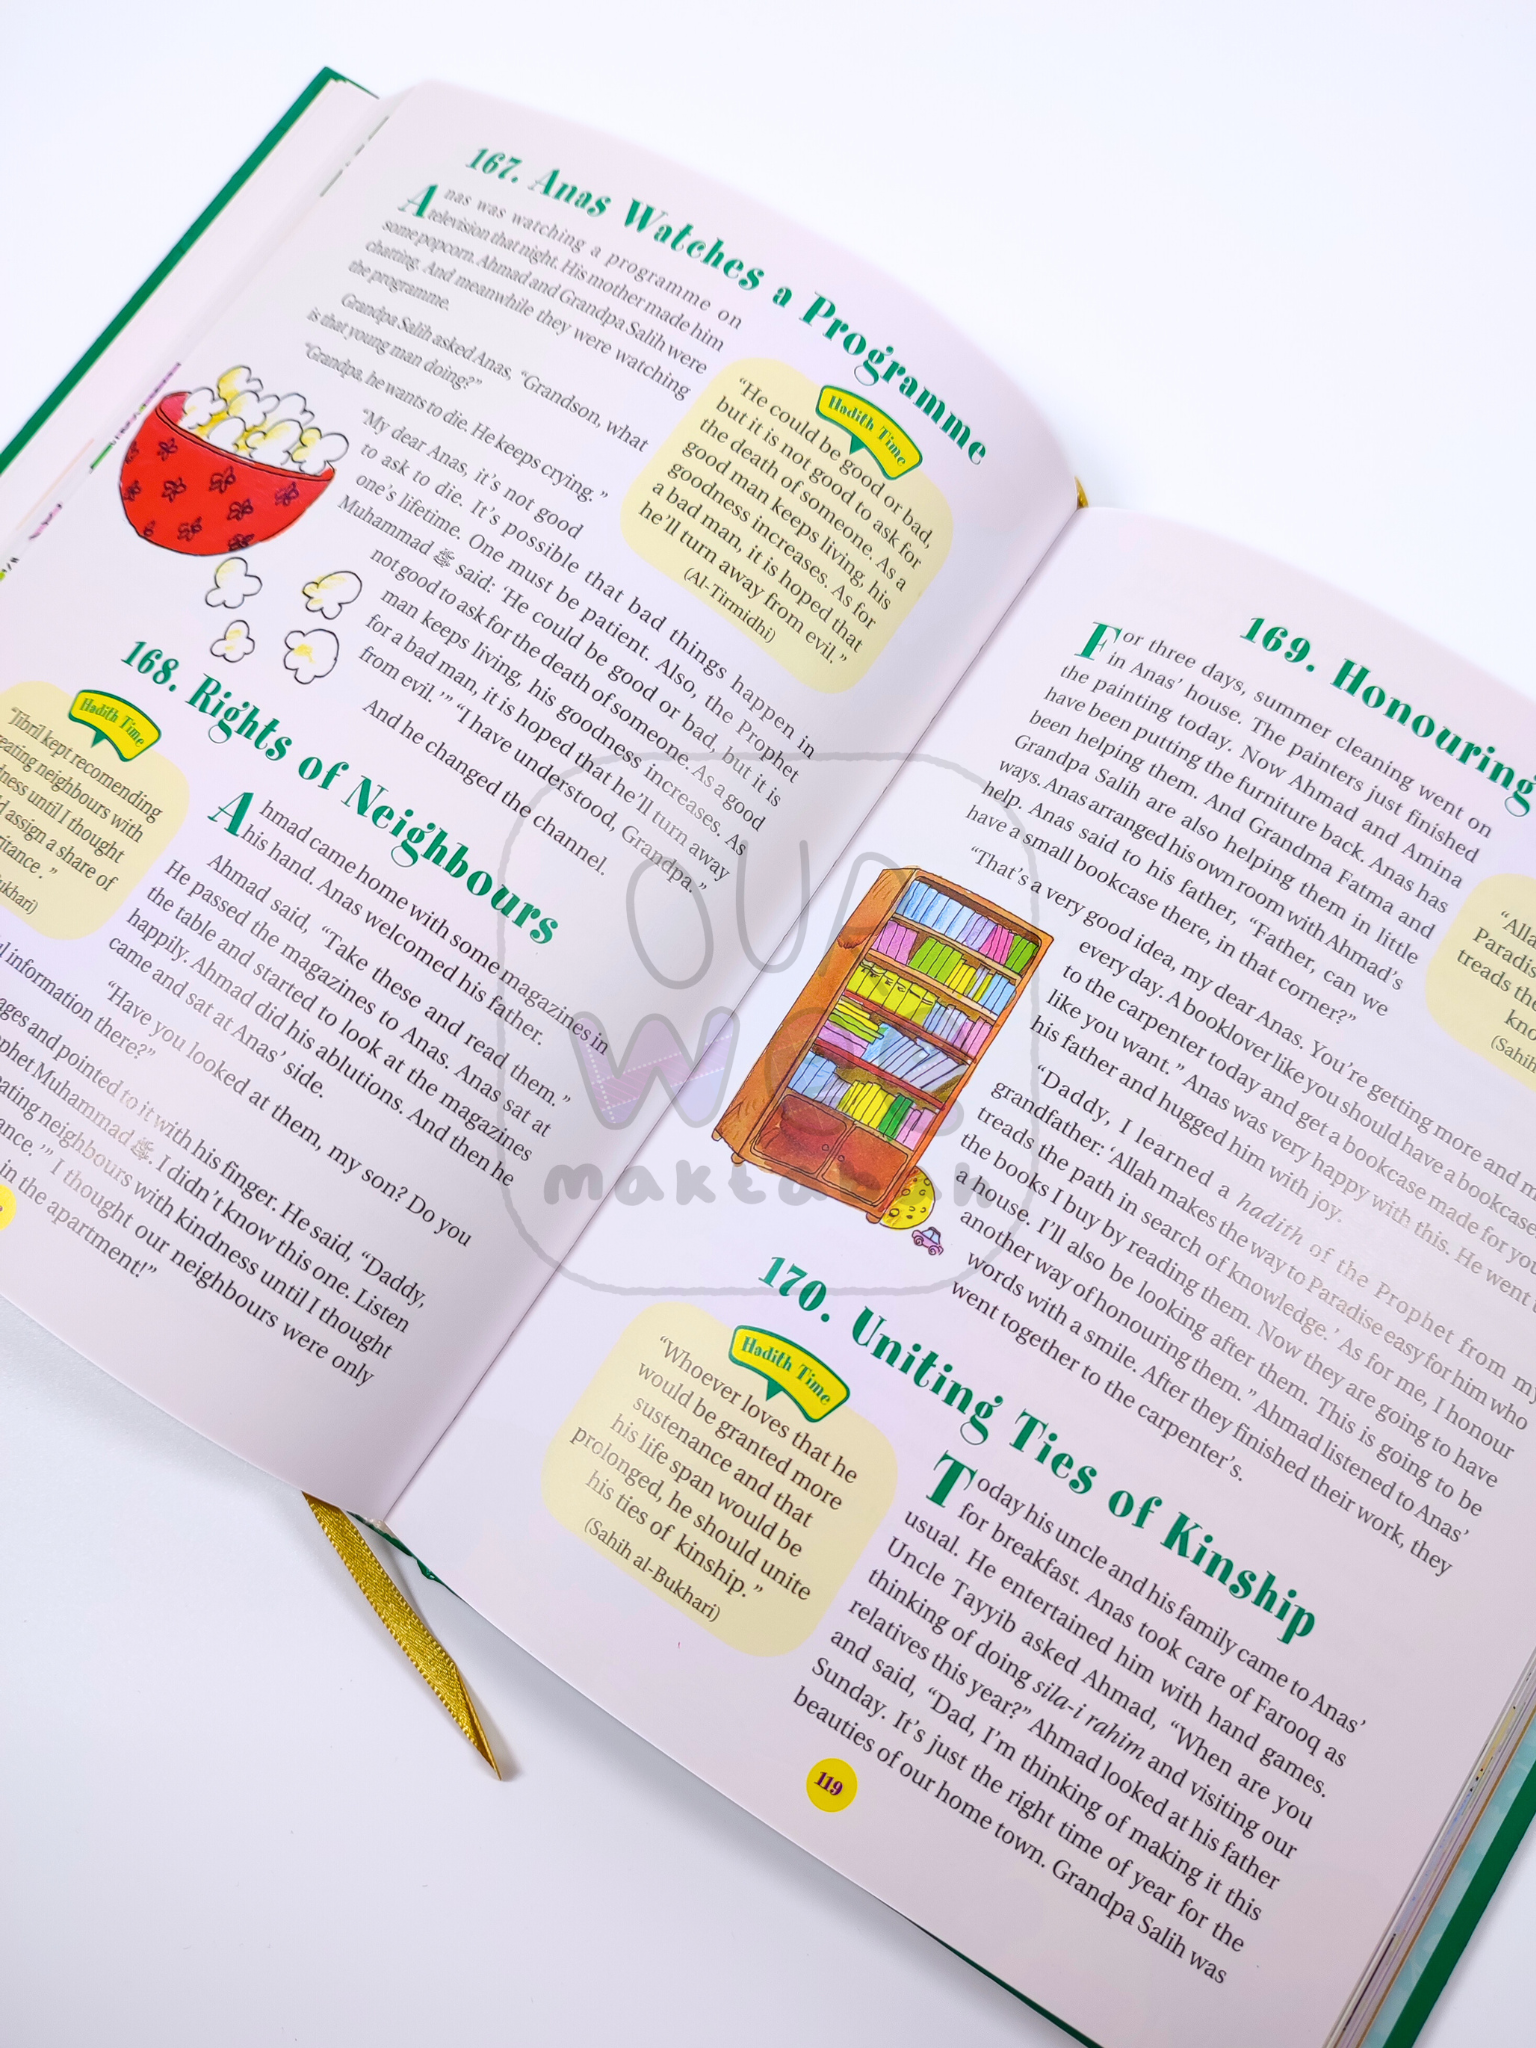 167. Anas Watches a Programme
Anas was watching a programme on
television that night. His mother made him
some popcorn. Ahmad and Grandpa Salih were
chatting. And meanwhile they were watching
the programme.
Grandpa Salih asked Anas, “Grandson, what
is that young man doing?”
“Grandpa, he wants to die. He keeps crying.”
“My dear Anas, it’s not good
to ask to die. It’s possible that bad things happen in
one’s lifetime. One must be patient. Also, the Prophet
Muhammad ﷺ said: ‘He could be good or bad, but it is
not good to ask for the death of someone. As a good
man keeps living, his goodness increases. As
for a bad man, it is hoped that he’ll turn away
from evil.’” “I have understood, Grandpa.”
And he changed the channel.
Hadith Time
“He could be good or bad,
but it is not good to ask for
the death of someone. As a
good man keeps living, his
goodness increases. As for
a bad man, it is hoped that
he’ll turn away from evil.”
(Al-Tirmidhi)
168. Rights of Neighbours
Hadith Time
“Jibril kept recomending
eating neighbours with
dness until I thought
d assign a share of
ritance.”
ukhari)
Ahmad came home with some magazines in
his hand. Anas welcomed his father.
Ahmad said, “Take these and read them.”
He passed the magazines to Anas. Anas sat at
the table and started to look at the magazines
happily. Ahmad did his ablutions. And then he
came and sat at Anas’ side.
“Have you looked at them, my son? Do you
information there?”
ages and pointed to it with his finger. He said, “Daddy,
phet Muhammad ﷺ. I didn’t know this one. Listen
eating neighbours with kindness until I thought
ance.’” I thought our neighbours were only
in the apartment!”
169. Honouring
For three days, summer cleaning went on
in Anas’ house. The painters just finished
the painting today. Now Ahmad and Amina
have been putting the furniture back. Anas has
been helping them. And Grandma Fatma and
Grandpa Salih are also helping them in little
ways. Anas arranged his own room with Ahmad’s
help. Anas said to his father, “Father, can we
have a small bookcase there, in that corner?”
“That’s a very good idea, my dear Anas. You’re getting more and m
every day. A booklover like you should have a bookcase.
to the carpenter today and get a bookcase made for you
like you want.” Anas was very happy with this. He went
his father and hugged him with joy.
“Daddy, I learned a hadith of the Prophet from my
grandfather: ‘Allah makes the way to Paradise easy for him who
treads the path in search of knowledge.’ As for me, I honour
the books I buy by reading them. Now they are going to have
a house. I’ll also be looking after them. This is going to be
another way of honouring them.” Ahmad listened to Anas’
words with a smile. After they finished their work, they
went together to the carpenter’s.
“Alla
Paradis
treads th
kno
(Sahih
170. Uniting Ties of Kinship
Hadith Time
“Whoever loves that he
would be granted more
sustenance and that
his life span would be
prolonged, he should unite
his ties of kinship.”
(Sahih al-Bukhari)
Today his uncle and his family came to Anas’
for breakfast. Anas took care of Farooq as
usual. He entertained him with hand games.
Uncle Tayyib asked Ahmad, “When are you
thinking of doing sila-i rahim and visiting our
relatives this year?” Ahmad looked at his father
and said, “Dad, I’m thinking of making it this
Sunday. It’s just the right time of year for the
beauties of our home town. Grandpa Salih was
119
OUR
maktabah